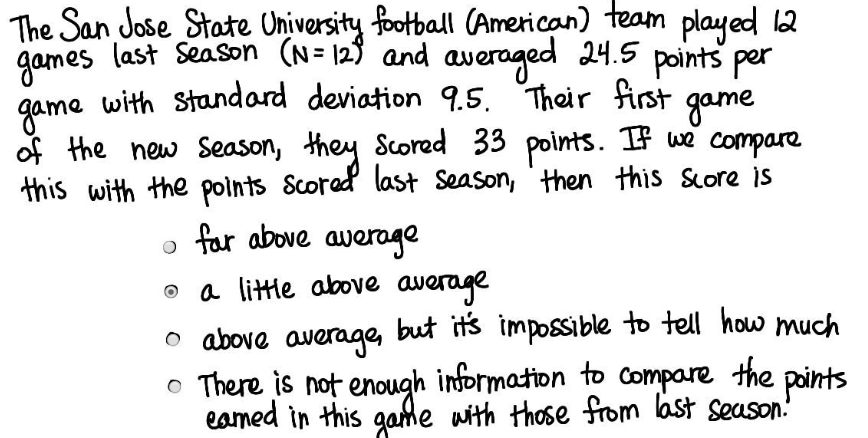 The San Jose State University football (American) team played 12
games last Season (N=12) and averaged 24.5 points per
game with standard deviation 9.5. Their first game
of the new Season, they Scored 33 points. If we compare
this with the points Scored last Season, then this Score is
far above average
a little above average
above average, but it's impossible to tell how much
There is not enough information to compare the points
earned in this game with those from last season.